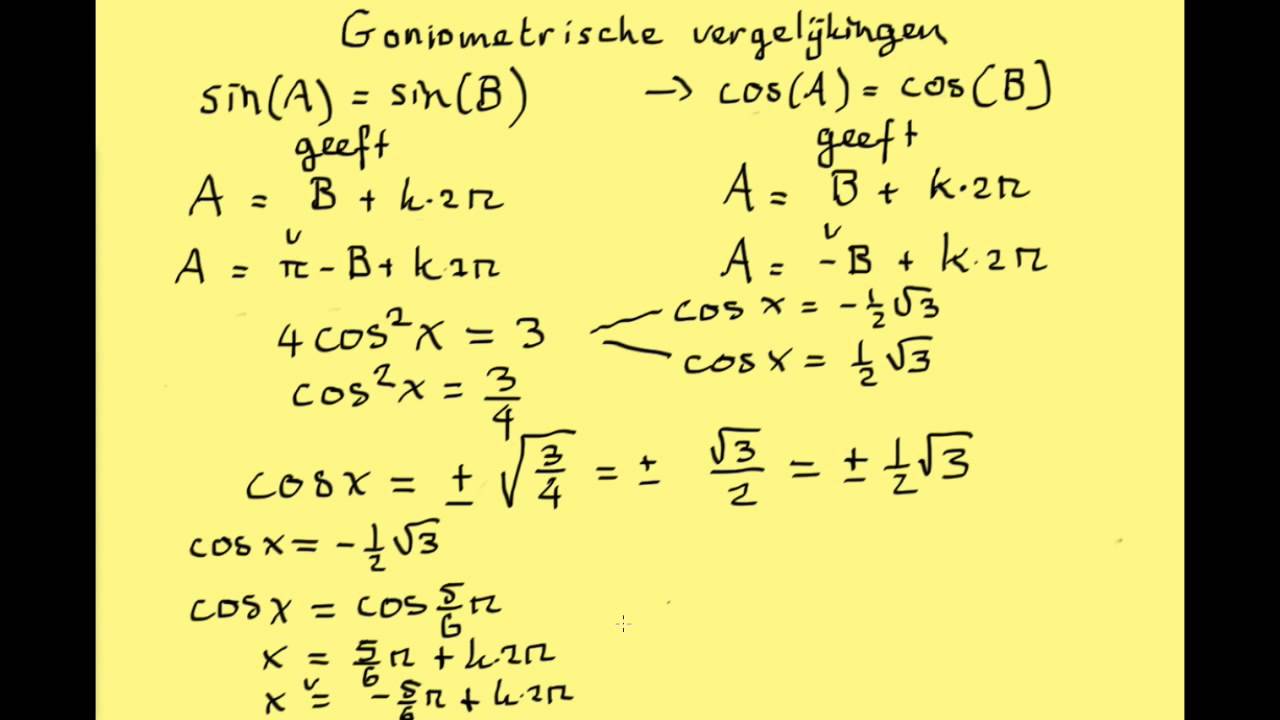 Goniometrische vergelijkingen
sin(A) = sin(B) → cos(A) = cos(B)
geeft geeft
A = B + k·2π A = B + k·2π
v v
A = π - B + k·2π A = -B + k·2π
cos x = -½√3
4 cos²x = 3
cos x = ½√3
cos²x = 3/4
cos x = ± √(3/4) = ± √3/2 = ± ½√3
cos x = -½√3
cos x = cos 5/6 π
x = 5/6 π + k·2π
v
x = -5/6 π + k·2π